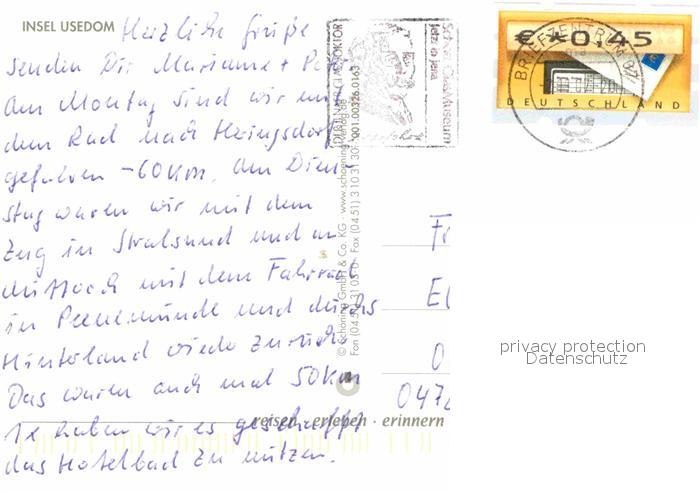 INSEL USEDOM
Herzliche Grüße
senden Dir Marianne + Pe
Am Montag sind wir mit
dem Rad nach Heringsdorf
gefahren - 60 km. Am Diens
stag waren wir mit dem
Zug in Stralsund und am
Mittwoch mit dem Fahrrad
in Peenemünde und durchs
Hinterland wieder zurück
Das waren auch mal 50 km
1x haben wir es geschafft
das Hotelbad zu nutzen.
© Schöning GmbH & Co. KG · www.schoening-verlag.de
Fon (04 51) 3 10 35 0 · Fax (04 51) 3 10 31 30 · 001.00326.0163
reisen · erleben · erinnern
jetzt in Jena
€ *0,45
DEUTSCHLAND
BRIEFZENTRUM
Fr
El
0
0472
privacy protection
Datenschutz